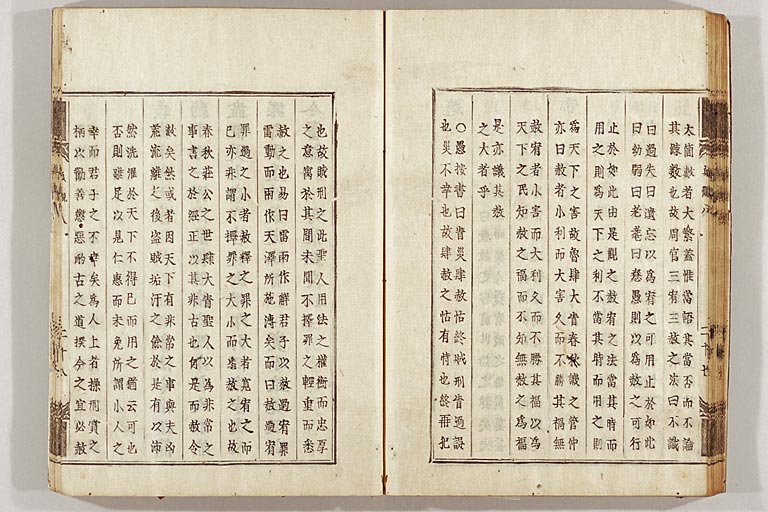 太簡赦者大繁蓋惟當語其當否而不論
其踈數也故周官三宥三赦之法曰不識
曰過失曰遺忘以爲宥之可用止於如此
曰幼弱曰老耄曰惷愚則以爲赦之可行
止於如此由是觀之赦宥之法當其時而
用之則爲天下之利不當其時而用之則
爲天下之害故魯肆大眚春秋譏之管仲
亦曰赦者小利而大害久而不勝其禍無
赦宥者小害而大利久而不勝其福以爲
天下之民知赦之福而不知無赦之爲福
是亦譏其赦
之大者乎
〇愚按書曰眚災肆赦怙終賊刑眚過誤
也災不幸也故肆赦之怙有恃也終再犯
也故賊刑之此聖人用法之權衡而忠厚
之意寓於其間未聞不擇罪之輕重而悉
赦之也易曰雷雨作解君子以赦過宥罪
雷動而雨作天澤所施溥矣而曰赦過宥
罪過之小者赦釋之罪之大者寬宥之而
已亦非謂不擇罪之大小而槩赦之也故
春秋莊公之世肆大眚聖人以爲非常之
事書之於經正以其非古也何是而赦令
數矣然或者因天下有非常之事與夫凶
荒流離之後盜賊垢汙之餘於是有以沛
然洗滌於天下不得已而用之猶云可也
否則雖足以見仁惠而未免所謂小人之
幸而君子之不幸矣爲人上者操刑賞之
柄以勸善懲惡酌古之道揆今之宜必赦